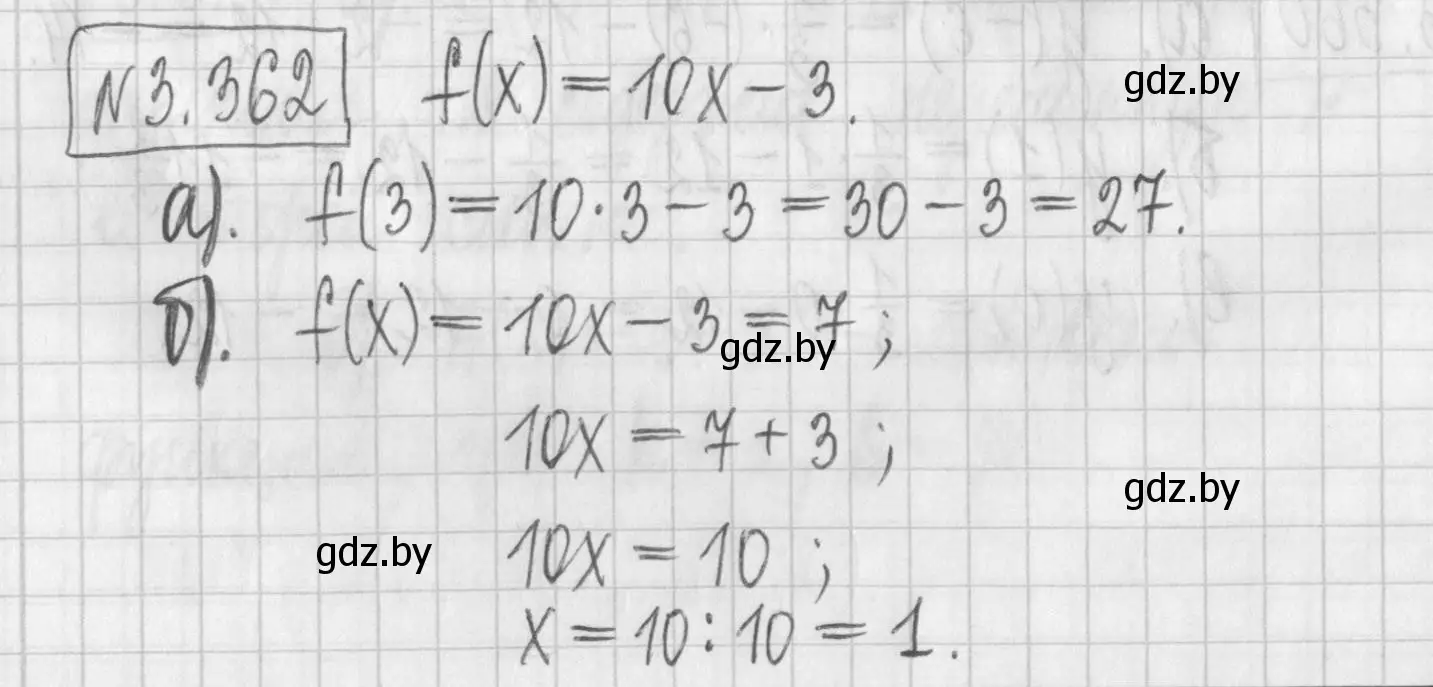 N 3.362 f(x) = 10x - 3. gdz.by
а). f(3) = 10·3 - 3 = 30 - 3 = 27.
б). f(x) = 10x - 3 = 7 ;
gdz.by
10x = 7 + 3 ;
gdz.by
gdz.by 10x = 10 ;
x = 10 : 10 = 1.